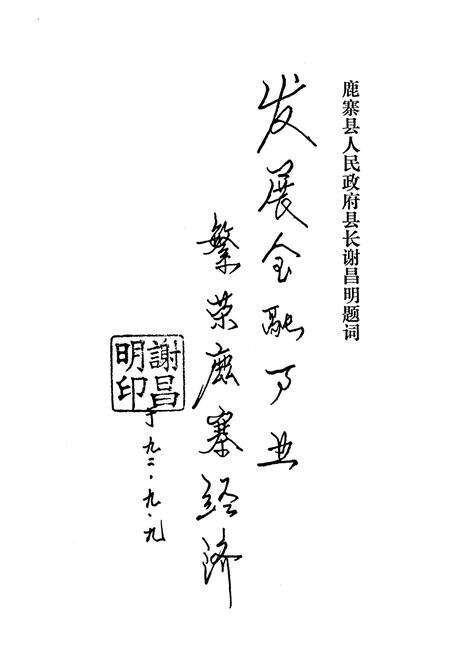 鹿寨县人民政府县长谢昌明题词
发展金融事业
繁荣鹿寨经济
謝昌明印
于九二.九.九